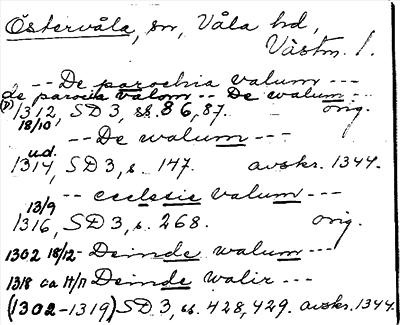 Östervåla, sn, Våla hd,
Västm. l.
-- De parochia valum ---
de parvia valom -- De walum --
(?) 1312, SD 3, ss. 86, 87. orig.
18/10
-- De walum ---
u.d.
1314, SD 3, s. 147. avskr. 1344.
-- ecclesie valum ---
13/9
1316, SD 3, s. 268. orig.
1302 18/12 - Deinde walum ---
1318 ca 14/11 Deinde walir ---
(1302-1319) SD 3, ss. 428, 429. avskr. 1344